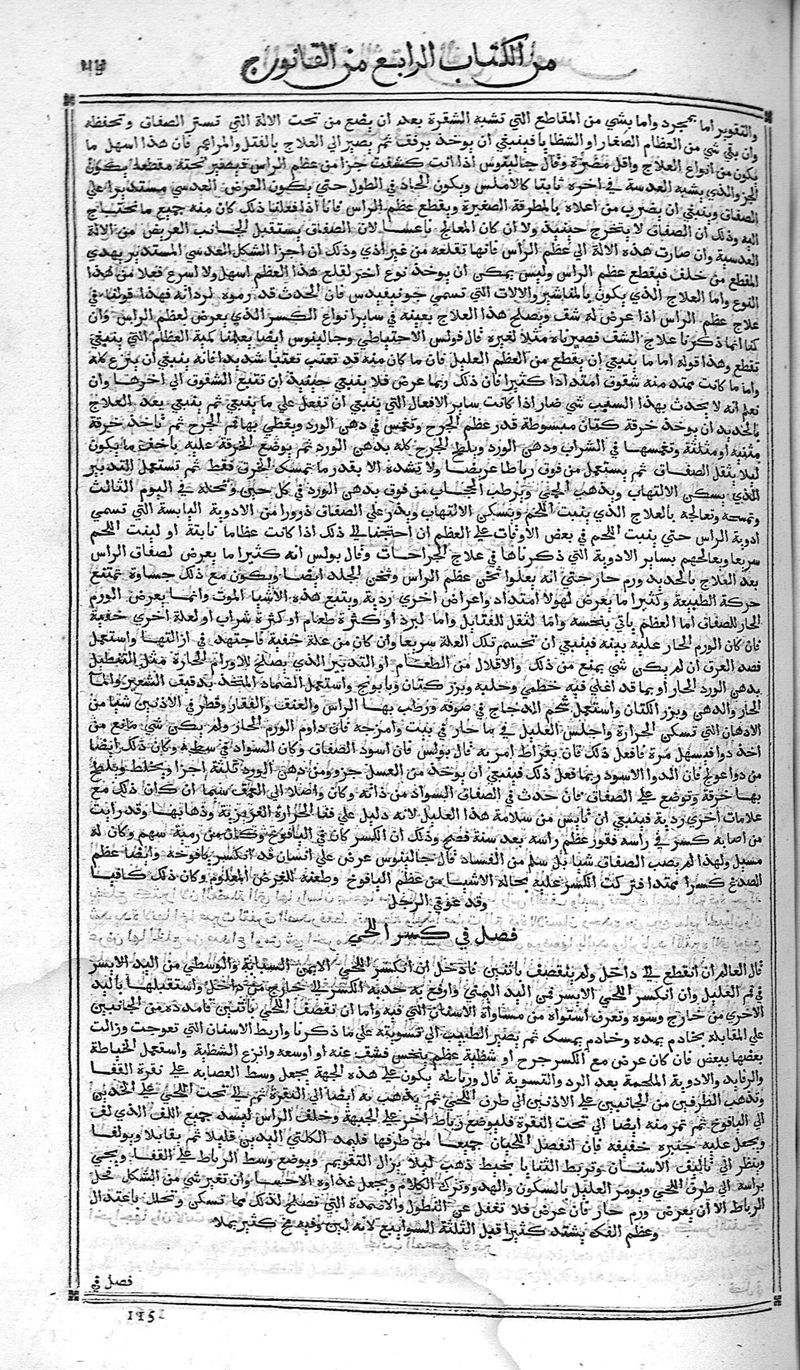 من الكتاب الرابع من القانون ج
والتقوير اما بمجرد واما بشي من المقاطع التي تشبه الشفرة بعد ان يضع من تحت الالة التي تستر الصفاق وتحفظه
وان بقي شي من العظام الصغار او الشظايا فينبغي ان يوخذ برفق ثم يصير الي العلاج بالفتل والمراهم فان هذا اسهل ما
يكون من انواع العلاج واقل مضرة وقال جالينوس اذا انت كشفت جزا من عظم الراس فصير تحته مقطعه يكون
الجز والذي يشبه العدسة في اخره ثابتا كالاملس ويكون الحاد في الطول حتي يكون العرض العدسي مستديرا علي
الصفاق وينبغي ان يضرب من اعلاه بالمطرقة الصغيرة ويقطع عظم الراس فانا اذا فعلنا ذلك كان منه جميع ما نحتاج
اليه وذلك ان الصفاق لا ينخرج حينيذ ولا ان كان المعالج ناعسا لان الصفاق يستقبل الجانب العريض من الالة
العدسية وان صارت هذه الالة الي عظم الراس فانها تقلعه من غير اذي وذلك ان اجزا الشكل العدسي المستدير يهدي
المقطع من خلف فيقطع عظم الراس وليس يمكن ان يوخذ نوع اخر لقلع هذا العظم اسهل ولا اسرع فعلا من هذا
النوع واما العلاج الذي يكون بالمناشير والالات التي تسمي جونيقيدس فان الحدث قد رموه لرداته فهذا قولنا في
علاج عظم الراس اذا عرض له شف ويصلح هذا العلاج بعينه في ساير انواع الكسر الذي يعرض لعظم الراس وان
كنا انما ذكرنا علاج الشف فصيرناه مثلا لغيره قال فولس الاجتياطي وجالينوس ايضا يعلمنا كمية العظام التي ينبغي
تقطع وهذا قوله اما ما ينبغي ان يقطع من العظم العليل فان ما كان منه قد تعتب تعتبا شديدا فانه ينبغي ان ينزع كله
واما ما كانت تمتد منه شقوق امتدادا كثيرا فان ذلك ربما عرض فلا ينبغي حينيذ ان تتبع الشقوق الي اخرها وان
تعلم انه لا يحدث بهذا السبب شي ضار اذا كانت ساير الافعال التي ينبغي ان تفعل علي ما ينبغي ثم ينبغي بعد العلاج
بالحديد ان يوخذ خرقة كتان مبسوطة قدر عظم الجرح وتغمس في دهن الورد ويغطي بها فم الجرح ثم تاخذ خرقة
مثنيه او مثلثة وتغمسها في الشراب ودهن الورد ويلطخ الجرح كله بدهن الورد ثم يوضع الخرقة عليه باخف ما يكون
ليلا يثقل الصفاق ثم يستعمل من فوق رباطا عريضا ولا يشده الا بقدر ما تمسك الخرق فقط ثم تستعمل التدبير
الذي يسكن الالتهاب ويذهب الحمي ويرطب الحجاب من فوق بدهن الورد في كل حين وتحله في اليوم الثالث
وتمسحه وتعالجه بالعلاج الذي ينبت اللحم ويسكن الالتهاب ويذر علي الصفاق ذرورا من الادوية اليابسة التي تسمي
ادوية الراس حتي ينبت اللحم في بعض الاوقات علي العظم ان احتجنا الي ذلك اذا كانت عظاما ناتية او لينت اللحم
سريعا ويعالجهم بساير الادوية التي ذكرناها في علاج الجراحات وقال بولس انه كثيرا ما يعرض لصفاق الراس
بعد العلاج بالحديد ورم حار حتي انه يعلوا ثخن عظم الراس وثخن الجلد ايضا ويكون مع ذلك جساوة تمتنع
حركة الطبيعة وكثيرا ما يعرض لهولا امتداد واعراض اخري ردية ويتبع هذه الاشيا الموت وانما يعرض الورم
الحار للصفاق اما العظم ياتي ينخسه واما لثقل للفتايل واما لبرد او كثرة طعام او كثرة شراب او لعلة اخري خفية
فان كان الورم الحار عليه بينه فينبغي ان تحسم تلك العلة سريعا وان كان من علة خفية فاجتهد في ازالتها واستعمل
فصد العرق ان لم يكن شي يمنع من ذلك والاقلال من الطعام او التدبير الذي يصلح للاورام الحارة مثل التنطيل
بدهن الورد الحار او بما قد اغلي فيه خطمي وحلبه وبزر كتان وبابونج واستعمل الضماد المتخذ بدقيق الشعير والما
الحار والدهن وبزر الكتان واستعمل شحم الدجاج في صوفه ورطب بها الراس والعنق والفقار وقطر في الاذنين شيا من
الادهان التي تسكن الحرارة واجلس العليل في ما حار في بيت وامرخه فان داوم الورم الحار ولم يكن شي مانع من
اخذ دوا فيسهل مرة فافعل ذلك فان بقراط امر به قال بولس فان اسود الصفاق وكان السواد في سطحه وكان ذلك ايضا
من دوا عولج فان الدوا الاسود ربما فعل ذلك فينبغي ان يوخذ من العسل جزو ومن دهن الورد ثلثة اجزا ويخلط ويلطخ
بها خرقة وتوضع علي الصفاق فان حدث في الصفاق السواد من ذاته وكان واصلا الي العمق سيما ان كان ذلك مع
علامات اخري ردية فينبغي ان تايس من سلامة هذا العليل لانه دليل علي فنا الحرارة الغريزية وذهابها وقد رايت
من اصابه كسر في راسه فقور عظم راسه بعد سنة فصح وذلك ان الكسر كان في اليافوخ وكان من رمية سهم وكان له
مسيل ولهذا لم يصب الصفاق شيا بل سلم من الفساد قال جالينوس عرض علي انسان قد انكسر يافوخه وايضا عظم
الصدغ كسرا ممتدا فتركت الكسر عليه بحاله الا شيا من عظم اليافوخ وطعنه للغرض المعلوم وكان ذلك كافيا
وقد عوفي الرجل
فصل في كسر اللحي
قال العالم ان انقطع الي داخل ولم ينقصف باثنين فادخل ان انكسر اللحي الايمن السبابة والوسطي من اليد الايسر
في فم العليل وان انكسر اللحي الايسر فمن اليد اليمني وارفع به حدبة الكسر الي خارج من داخل واستقبلها باليد
الاخري من خارج وسوه وتعرف استواه من مساواة الاسنان التي فيه واما ان تقصف اللحي باثنين فامدده من الجانبين
علي المقابلة بخادم يمده وخادم يمسك ثم يصير الطبيب الي تسويته علي ما ذكرنا واربط الاسنان التي تعوجت وزالت
بعضها ببعض فان كان عرض مع الكسر جرح او شظية عظم ينخس فشف عنه او اوسعه وانزع الشظية واستعمل الخياطة
والرفايد والادوية الملحمة بعد الرد والتسوية قال ورباطه يكون علي هذه الجهة يجعل وسط العصابه علي نقرة القفا
وتذهب الطرفين من الجانبين علي الاذنين الي طرف اللحي ثم يذهب به ايضا الي النقرة ثم الي تحت اللحي علي الخدين
الي اليافوخ ثم تمر منه ايضا الي تحت النقرة فليوضع رباط اخر علي الجبهة وخلف الراس ليشد جميع اللف الذي لف
ويجعل عليه جبيره خفيفه فان انفصل اللحيان جميعا من طرفها فليمد الكلتي اليدين قليلا ثم يقابلا ويولفا
وينظر الي تاليف الاسنان وتربط الثنايا بخيط ذهب ليلا يزال التقويم ويوضع وسط الرباط علي القفا ويجي
براسه الي طرف اللحي ويومر العليل بالسكون والهدو وترك الكلام ويجعل غذاوه الاحسا وان تغير شي من الشكل فحل
الرباط الا ان يعرض ورم حار فان عرض فلا تغفل عن النطول والاضمدة التي تصلح لذلك مما تسكن وتحلل باعتدال
وعظم الفك يشتد كثيرا قبل الثلثة السوابيع لانه لين وفيه مخ كثير يملا
فصل في